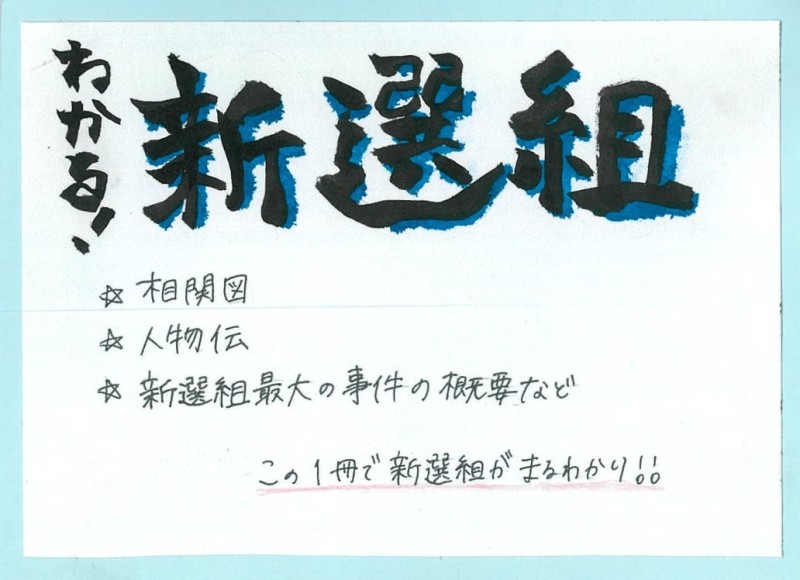 わかる!
新選組
☆ 相関図
☆ 人物伝
☆ 新選組最大の事件の概要など
この1冊で新選組がまるわかり!!